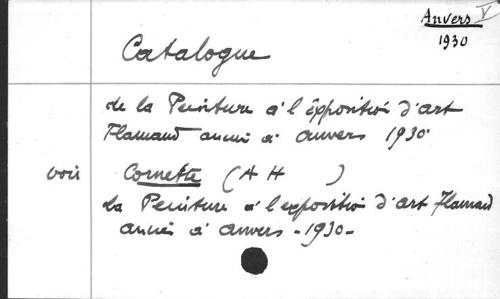 Anvers V
1930
Catalogue
de la Peinture à l'exposition d'art
Flamand ancien à Anvers 1930
voir Cornette (A H )
La Peinture à l'exposition d'art Flamand
ancien à Anvers - 1930 -